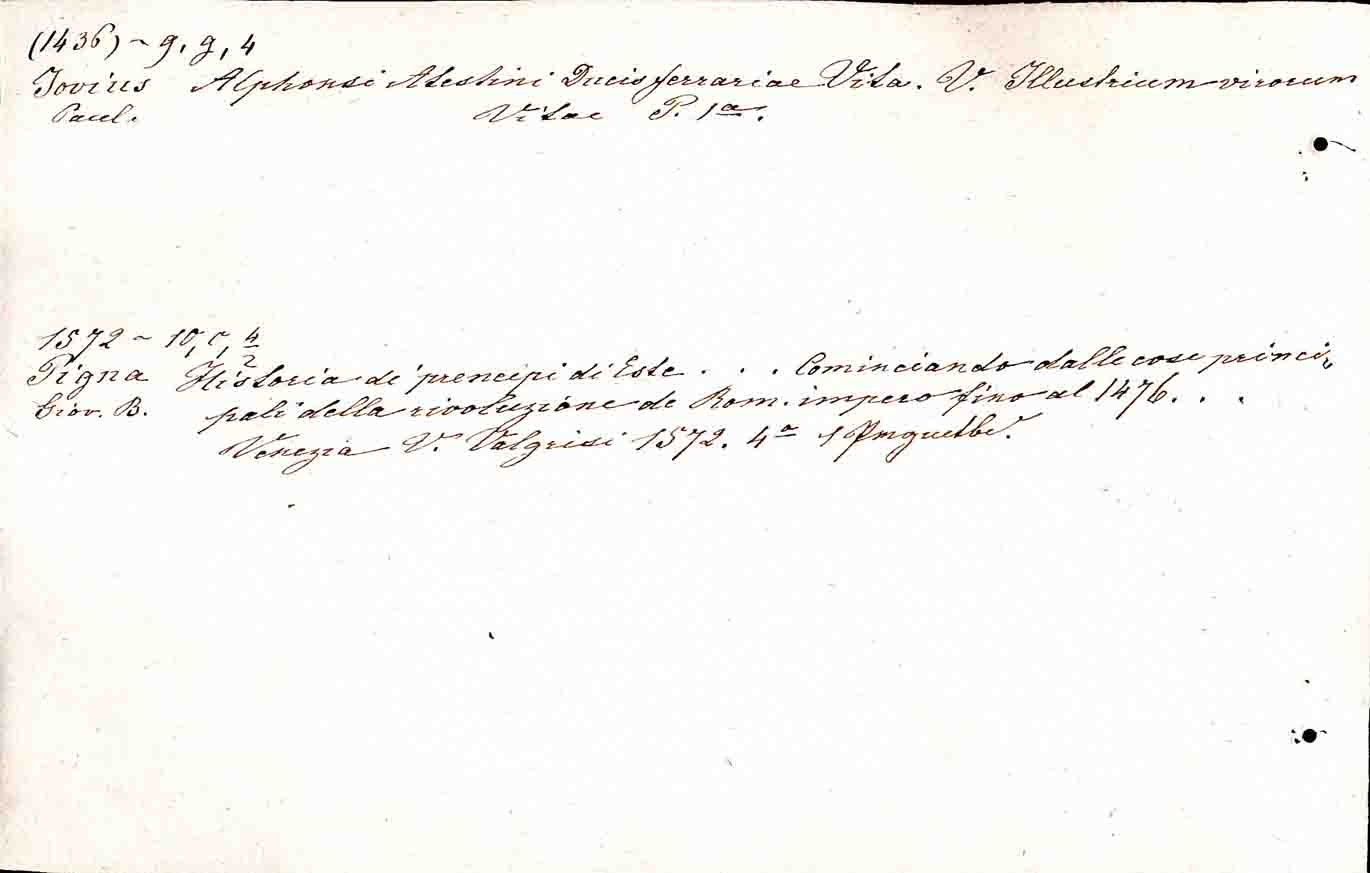 (1436) ~ 9, g, 4
Jovius Alphonsi Atestini Ducis ferrariae Vita. V. Illustrium virorum
Paul. Vitae P. 1a.
1572 ~ 10, c, 4/2
Pigna Historia de' prencipi di Este . . . Cominciando dalle cose princi-
Giov. B. pali della rivoluzione de Rom. impero fino al 1476. . .
Venezia V. Valgrisi 1572. 4a 1